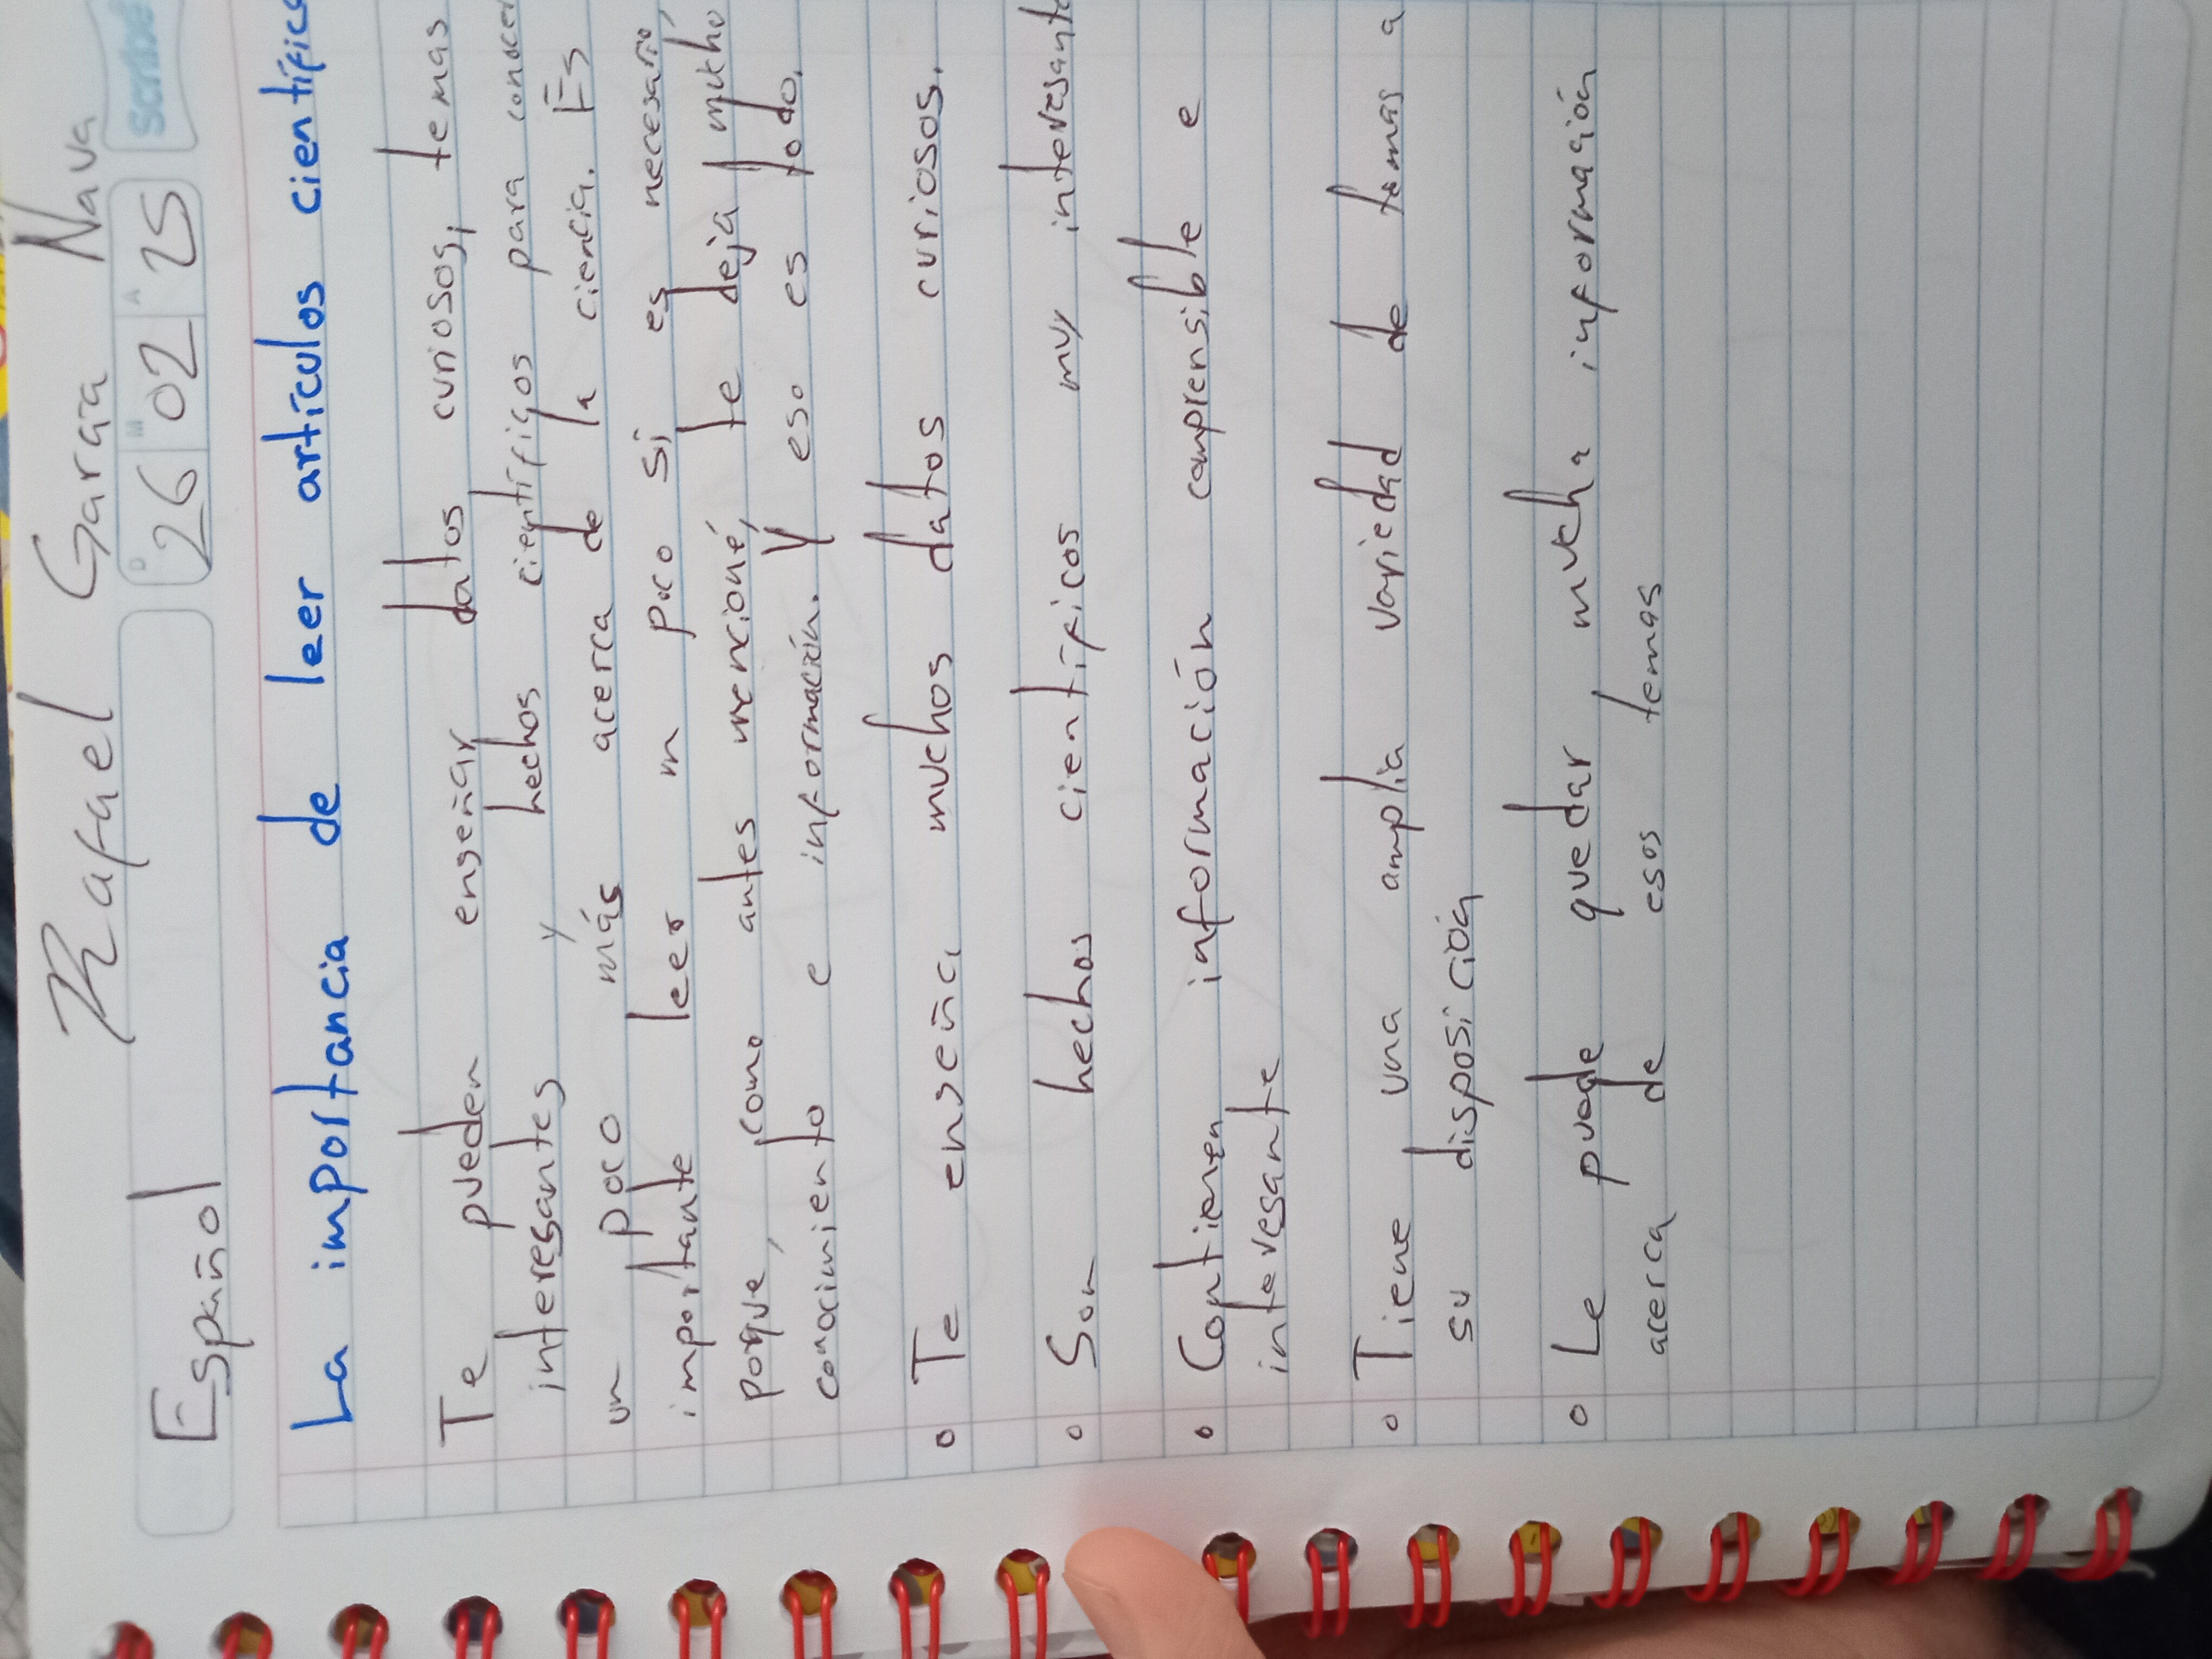 Rafael Garcia Nava
Español
D M A
26 02 25
Scribe
La importancia de leer artículos científic
Te pueden enseñar datos curiosos, temas
interesantes y hechos científicos para conocer
un poco más acerca de la ciencia. Es
importante leer un poco si es necesario,
porque, como antes mencioné, te deja mucho
conocimiento e información. Y eso es todo.
Te enseña muchos datos curiosos.
Son hechos científicos muy interesante
Contienen información comprensible e
interesante
Tiene una amplia variedad de temas a
su disposición
Le puede quedar mucha información
acerca de esos temas